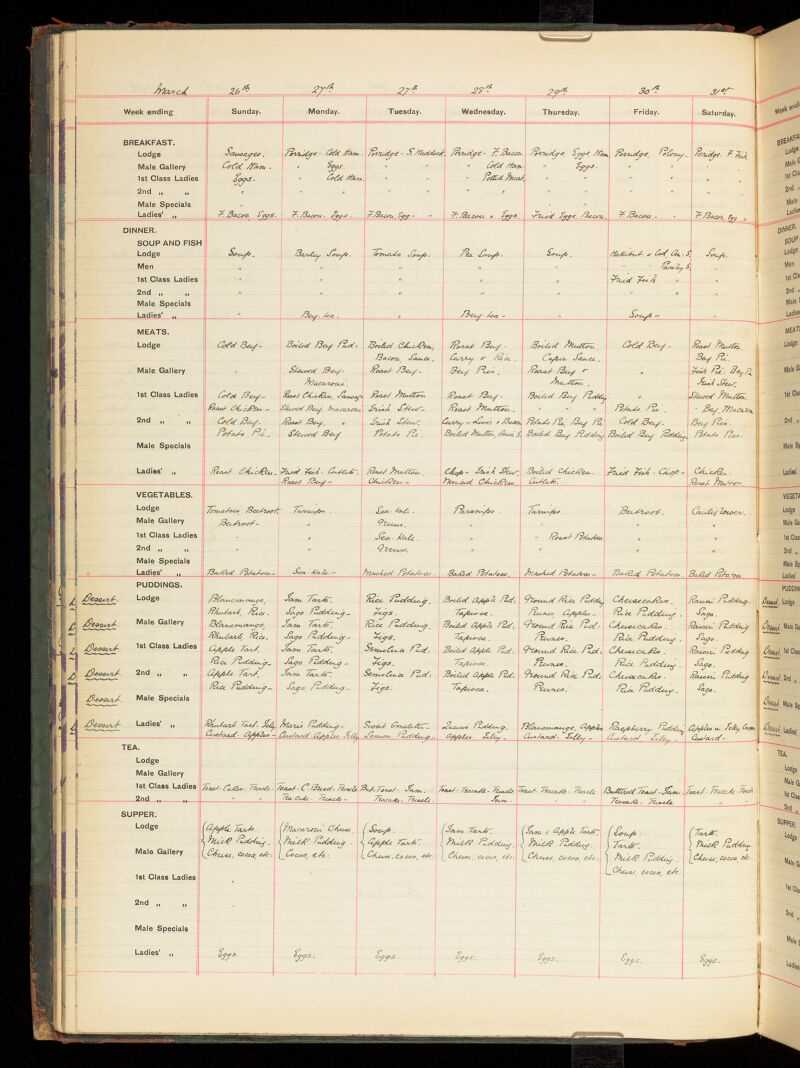 March 26th 27th 27th 28th 29th 30th 31st
Week ending Sunday. Monday. Tuesday. Wednesday. Thursday. Friday. Saturday.
BREAKFAST.
Lodge Sausages. Porridge - Cold Ham. Porridge - S. Haddock. Porridge - F. Bacon Porridge Eggs Ham Porridge, Polony. Porridge. F. Fish
Male Gallery Cold Ham. " Eggs. " " " Cold Ham " Eggs. " " " "
1st Class Ladies Eggs. " Cold Ham " " " Potted Meat " " " " " "
2nd " " " " " " " " " " " " " " "
Male Specials " "
Ladies' " F. Bacon, Eggs. F. Bacon. Eggs. F. Bacon, Egg - " F. Bacon & Eggs Fried Eggs Bacon. F. Bacon - " F. Bacon Egg "
DINNER.
SOUP AND FISH
Lodge Soup. Barley Soup. Tomato Soup. Pea Soup. Soup. Hallibut & Cod, An: S. Soup.
Men " " " " " " Parsley S. "
1st Class Ladies " " " " " Fried Fish " "
2nd " " " " " " " " " "
Male Specials
Ladies' " " Beef-tea. " Beef-tea - " Soup - "
MEATS.
Lodge Cold Beef - Boiled Beef Pud. Boiled Chicken, Roast Beef - Boiled Mutton Cold Beef - Roast Mutton
Bacon, Sauce. Curry & Rice. Caper Sauce. Beef Pie.
Male Gallery " Stewed Beef - Roast Beef - Beef Pies. Roast Beef & " Fish Pie. Beef Pie
Macaroni. Mutton Irish Stew.
1st Class Ladies Cold Beef - Roast Chicken, Sausage Roast Mutton Roast Beef - Boiled Beef Pudding " Stewed Mutton
Roast Chicken - Stewed Beef, Macaroni Irish Stew - Roast Mutton. " " " Potato Pie. " Beef Macaroni
2nd " " Cold Beef. Roast Beef. " Irish Stew. Curry - Liver & Bacon Potato Pie, Beef Pie Cold Beef - Beef Pies.
Potato Pie - Stewed Beef Potato Pie. Boiled Mutton Boiled Beef Pudding Boiled Beef Pudding. Potato Pies.
Male Specials
Ladies' " Roast Chicken. Fried Fish - Cutlets. Roast Mutton. Chop - Irish Stew. Boiled Chicken. Fried Fish - Chop - Chicken.
Roast Beef - Chicken - Minced Chicken Cutlets. Roast Mutton.
VEGETABLES.
Lodge Tomatoes Beetroot. Turnips. Sea-kale. Parsnips. Turnips. Beetroot. Cauliflower.
Male Gallery Beetroot - " Greens. " " " "
1st Class Ladies " " Sea-Kale. " " - Roast Potatoes " "
2nd " " " " Greens. " " " "
Male Specials
Ladies' " Baked Potatoes - Sea-kale - Mashed Potatoes. Baked Potatoes. Mashed Potatoes - Baked Potatoes. Baked Potatoes
PUDDINGS.
Dessert. Lodge Blancmange, Jam Tarts. Rice Pudding. Boiled Apple Pud. Ground Rice Pudding Cheesecakes. Raisin Pudding.
Rhubarb, Rice. Sago Pudding - Figs. Tapioca. Prunes, Apples - Rice Pudding. Sago.
Dessert. Male Gallery Blancmange, Jam Tarts. Rice Pudding. Boiled Apple Pud. Ground Rice Pud. Cheesecakes. Raisin Pudding
Rhubarb Rice. Sago Pudding - Figs. Tapioca. Prunes. Rice Pudding. Sago.
Dessert. 1st Class Ladies Apple Tart. Jam Tarts. Semolina Pud. Boiled Apple Pud. Ground Rice Pud. Cheesecakes. Raisin Pudding
Rice Pudding - Sago Pudding - Figs. Tapioca. Prunes. Rice Pudding - Sago.
Dessert. 2nd " " Apple Tart, Jam Tarts. Semolina Pud. Boiled Apple Pud. Ground Rice Pud. Cheesecakes. Raisin Pudding
Rice Pudding - Sago Pudding - Figs. Tapioca. Prunes. Rice Pudding. Sago.
Dessert. Male Specials
Dessert. Ladies' " Rhubarb Tart. Jelly Marie Pudding - Sweet Omelette - Queens Pudding. Blancmange, Apples Raspberry Pudding Apples in Jelly
Custard. Apples - Custard. Apples Jelly Lemon Pudding - Apples Jelly. Custard. Jelly - Custard Jelly - Custard.
TEA.
Lodge
Male Gallery
1st Class Ladies Toast. Cakes. Treacle Toast. C. Bread. Treacle But. Toast. Jam. Toast. Teacake. Treacle Toast. Teacake. Treacle Buttered Toast. Jam. Toast. Teacake. Treacle
2nd " " " " Teacake. Treacle - Teacake. Treacle. Jam. " " Teacake. Treacle " "
SUPPER.
Lodge Apple Tarts. Macaroni Cheese. Soup. Jam Tarts. Jam & Apple Tarts. Soup. Tarts.
Milk Pudding. Milk Pudding. Apple Tarts. Milk Pudding. Milk Pudding. Tarts. Milk Pudding.
Male Gallery Cheese, cocoa, etc: Cocoa, etc: Cheese, cocoa, etc. Cheese, cocoa, etc: Cheese, cocoa, etc: Milk Pudding. Cheese, cocoa, etc:
Cheese, cocoa, etc:
1st Class Ladies "
2nd " "
Male Specials
Ladies' " Eggs. Eggs. Eggs. Eggs. Eggs. Eggs. Eggs.